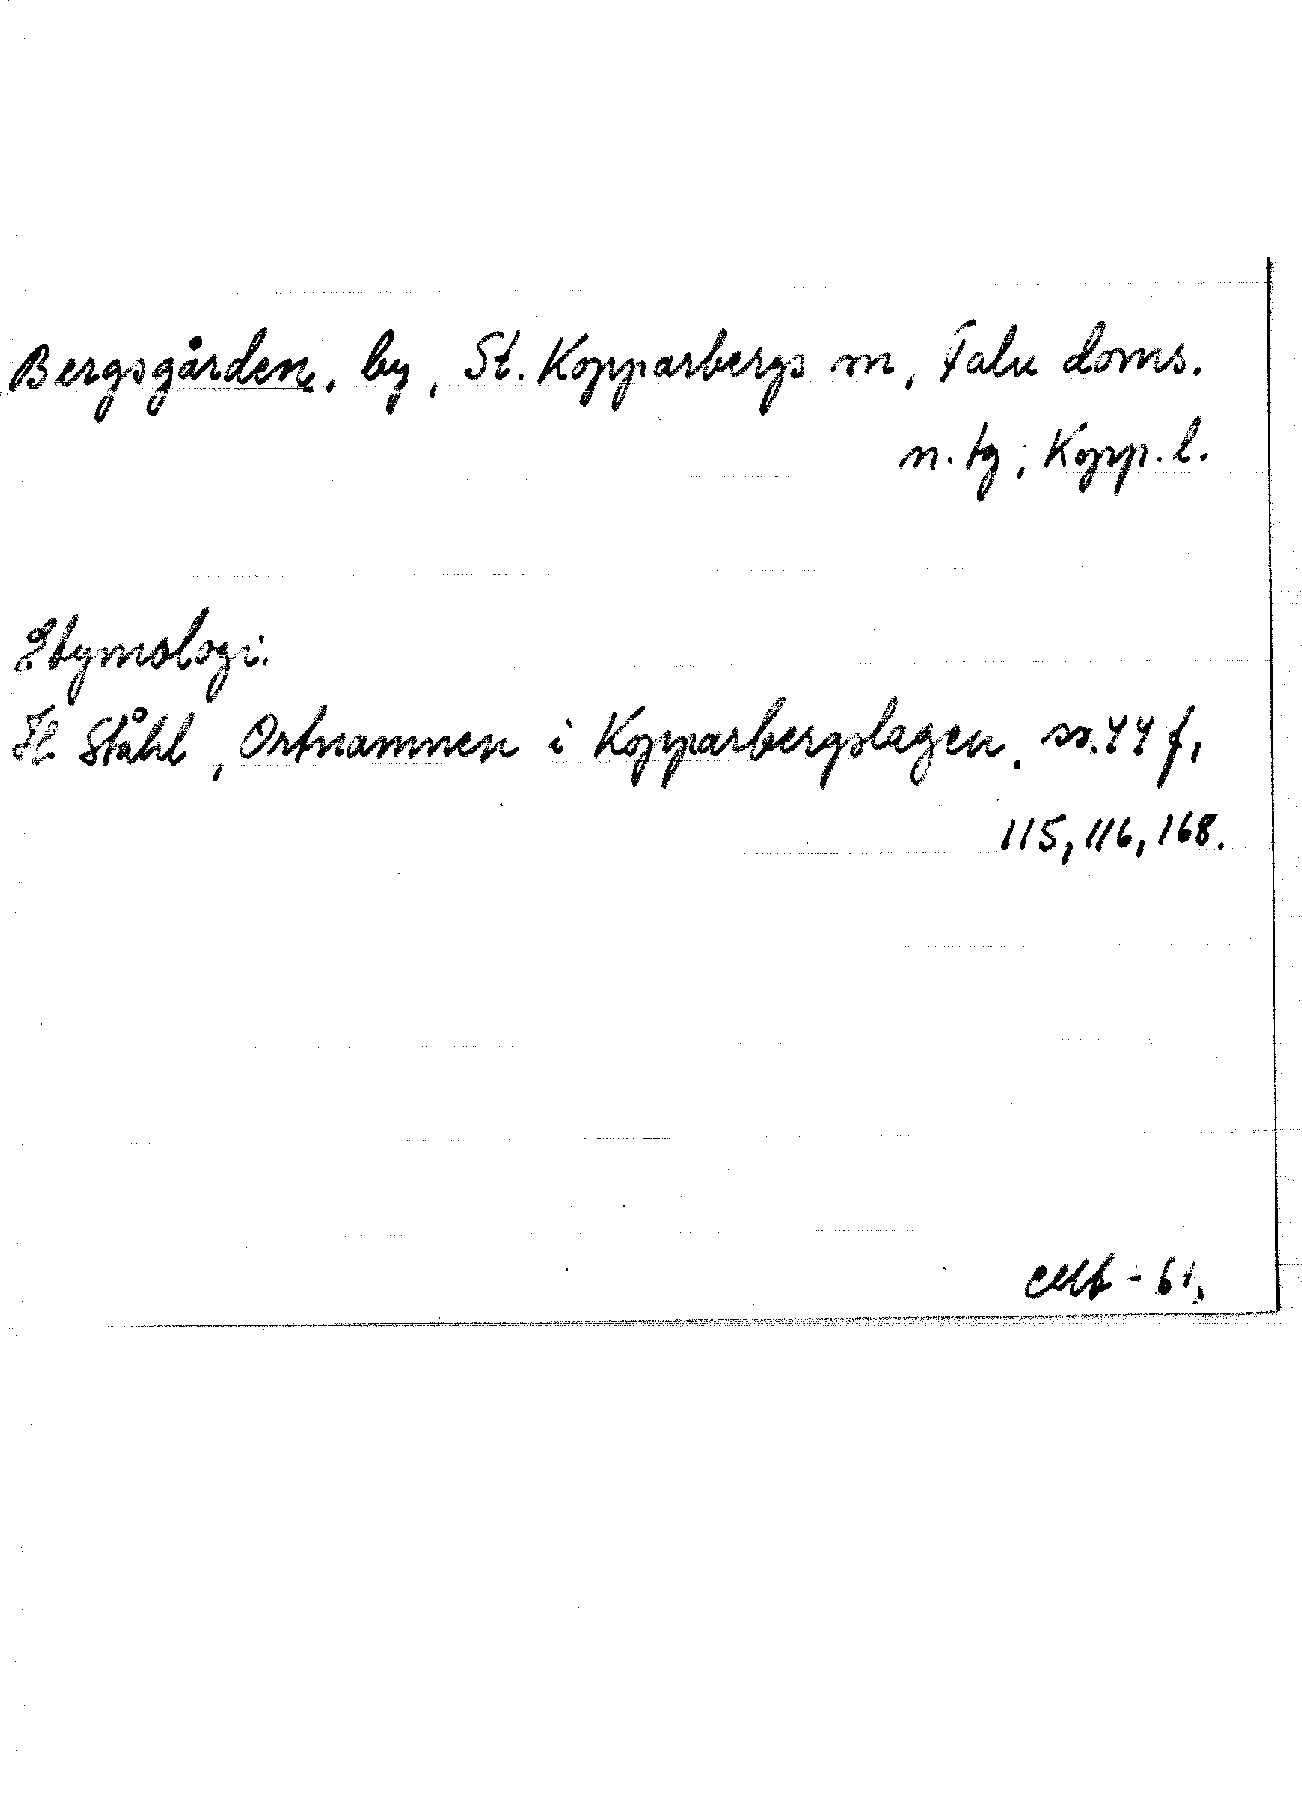 Bergsgården, by, St. Kopparbergs sn, Falu doms.
n. tg, Kopp. l.
Etymologi.
H. Ståhl, Ortnamnen i Kopparbergslagen, ss. 44 f,
115, 116, 168.
-61,